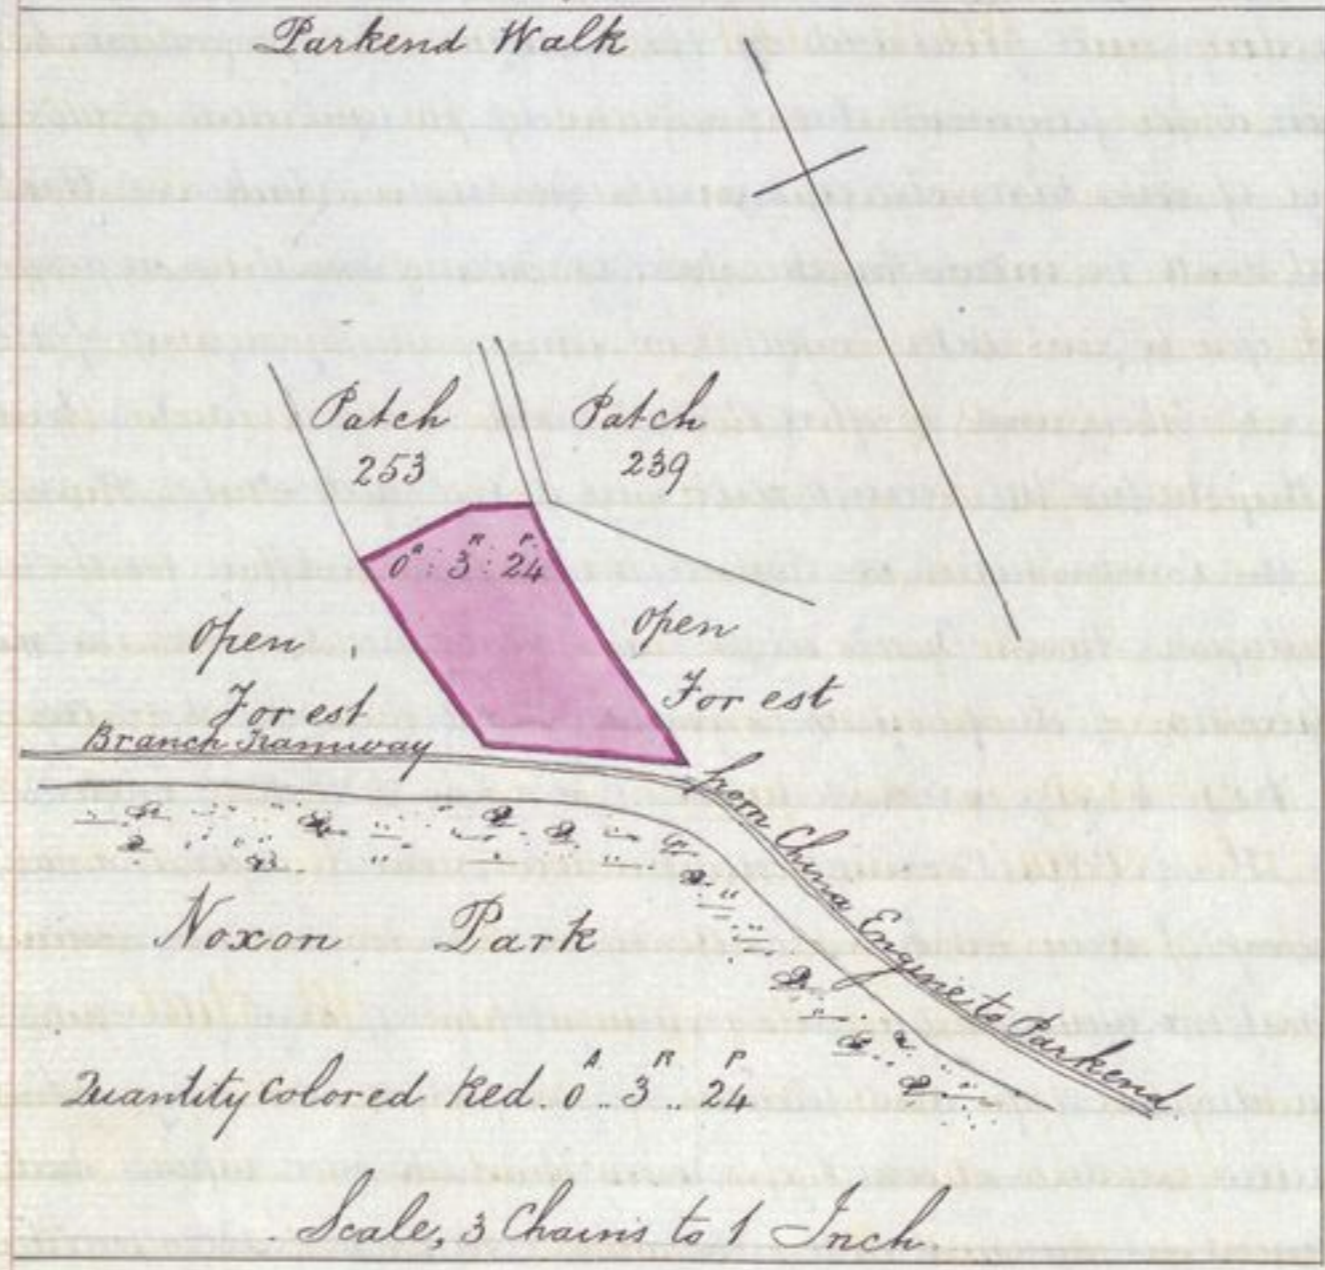 Parkend Walk
Patch
253
Patch
239
A R P
0 : 3 : 24
Open
Forest
Open
Forest
Branch Tramway
from China Engine to Parkend
Noxon Park
A R P
Quantity Colored Red. 0 .. 3 .. 24
Scale, 3 Chains to 1 Inch.